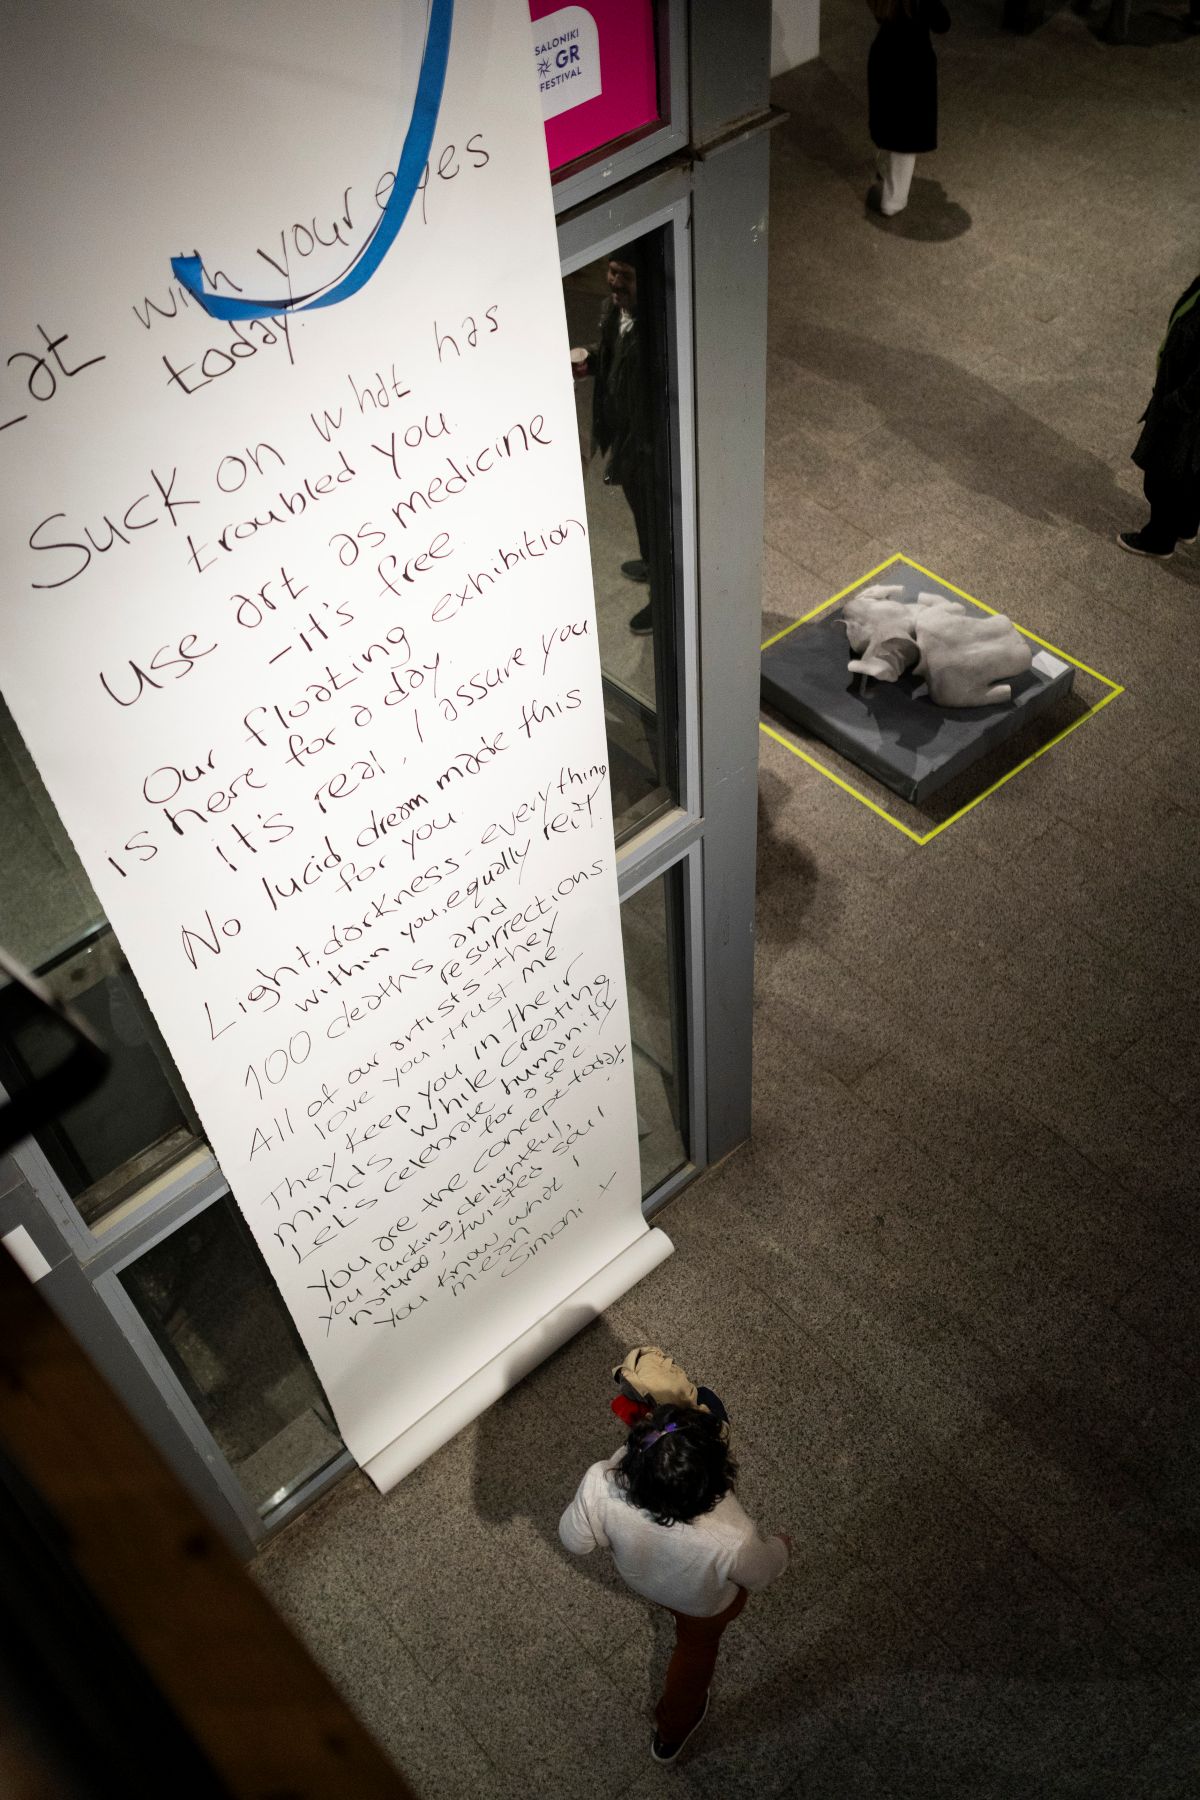 SALONIKI
GR
FESTIVAL
Eat with your eyes
today.
Suck on what has
troubled you.
Use art as medicine
- it's free.
Our floating exhibition
is here for a day.
it's real, I assure you
No lucid dream made this
for you.
Light, darkness - everything
within you, equally
100 deaths and
resurrections.
All of our artists - they
love you, trust me
They keep you in their
minds while creating
Let's celebrate humanity
for a sec.
You are the concept today,
you fucking delightful,
natural, twisted soul!
You know what I
mean!
Simoni x